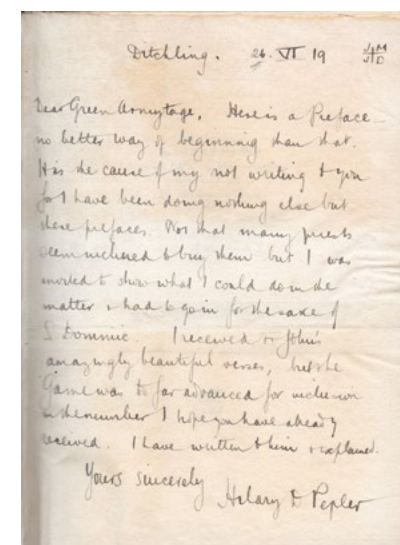 Ditchling. 26. VI 19
Dear Green Armytage. Here is a Preface –
no better way of beginning than that.
It is the cause of my not writing to you
for I have been doing nothing else but
these prefaces. Not that many priests
seem inclined to buy them but I was
invited to show what I could do in the
matter & had to go in for the sake of
S Dominic. I received Fr John's
amazingly beautiful verses, but the
Game was too far advanced for inclusion
in the number I hope you have already
received. I have written to him & explained.
Yours sincerely
Hilary D Pepler